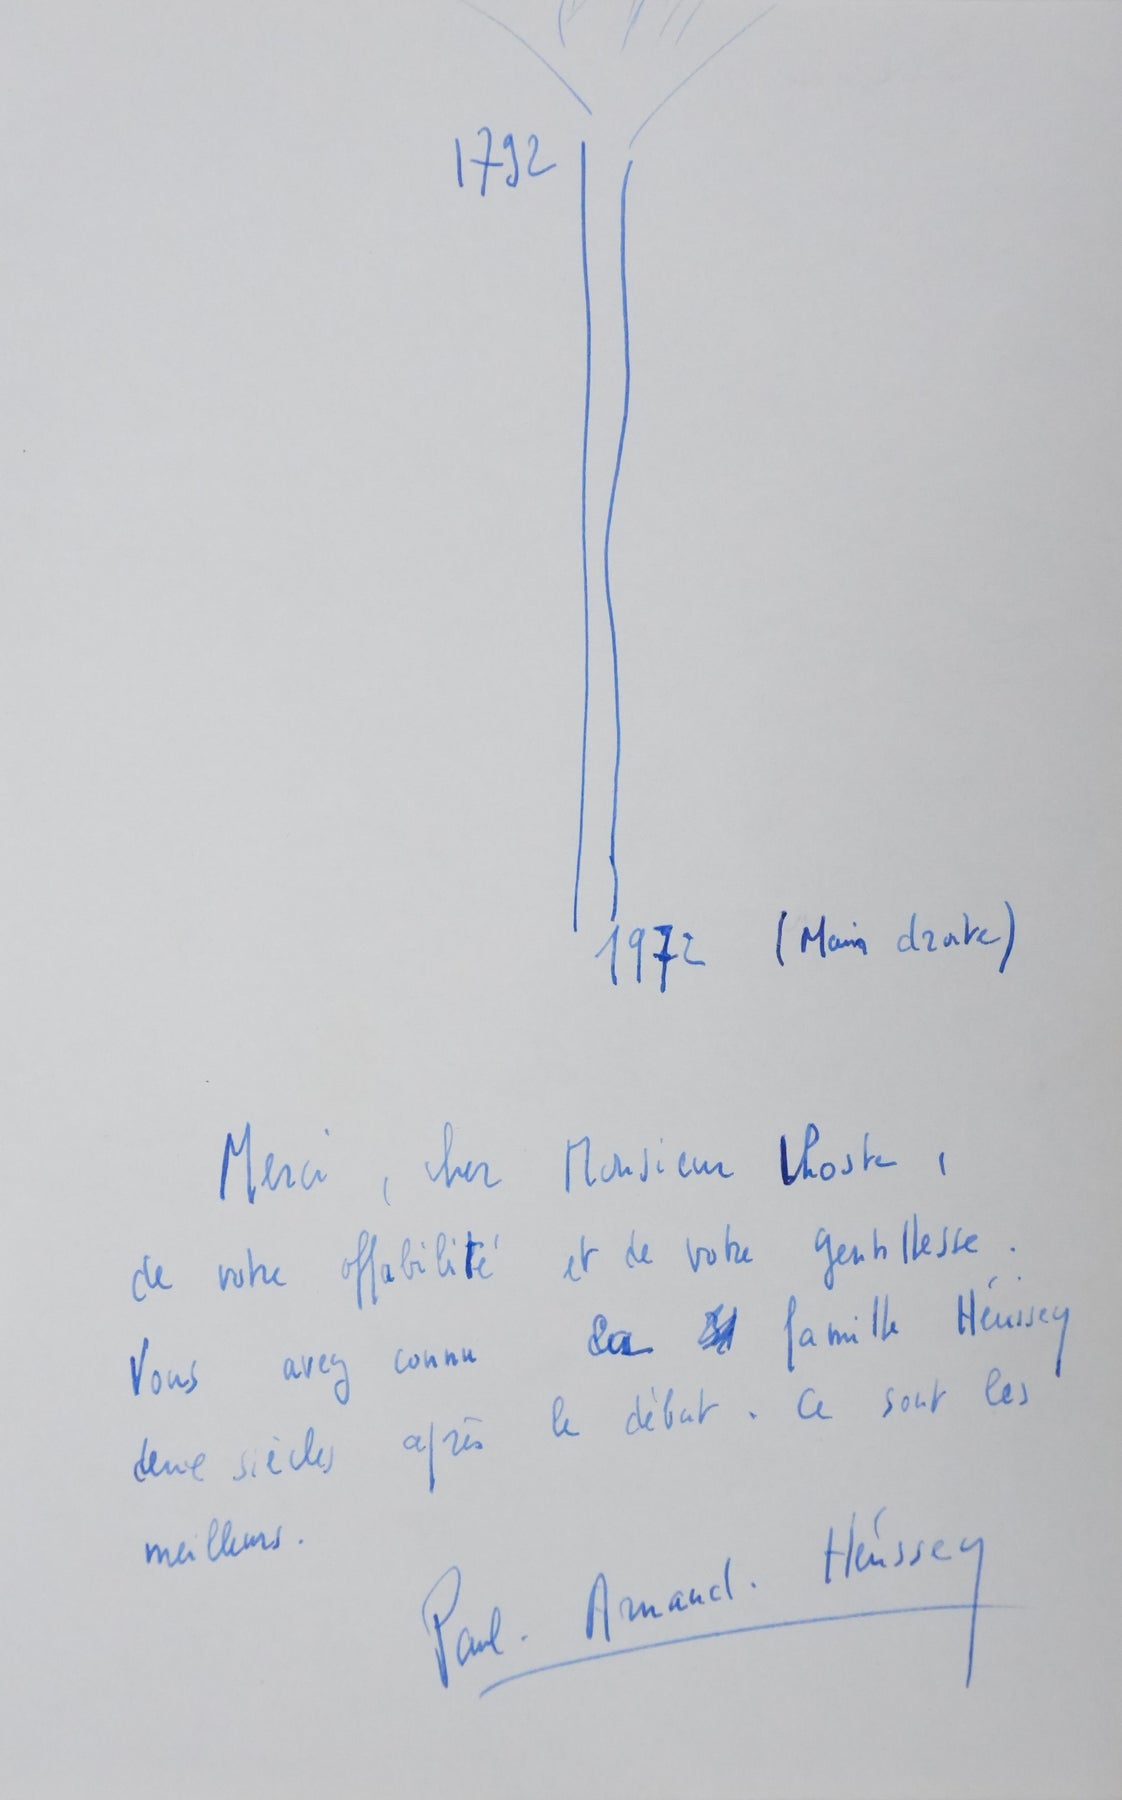 1792
1972 (Main droite)
Merci, cher Monsieur Lhoste,
de votre affabilité et de votre gentillesse.
Vous avez connu la famille Héussey
deux siècles après le début. Ce sont les
meilleurs.
Paul. Armand. Héussey